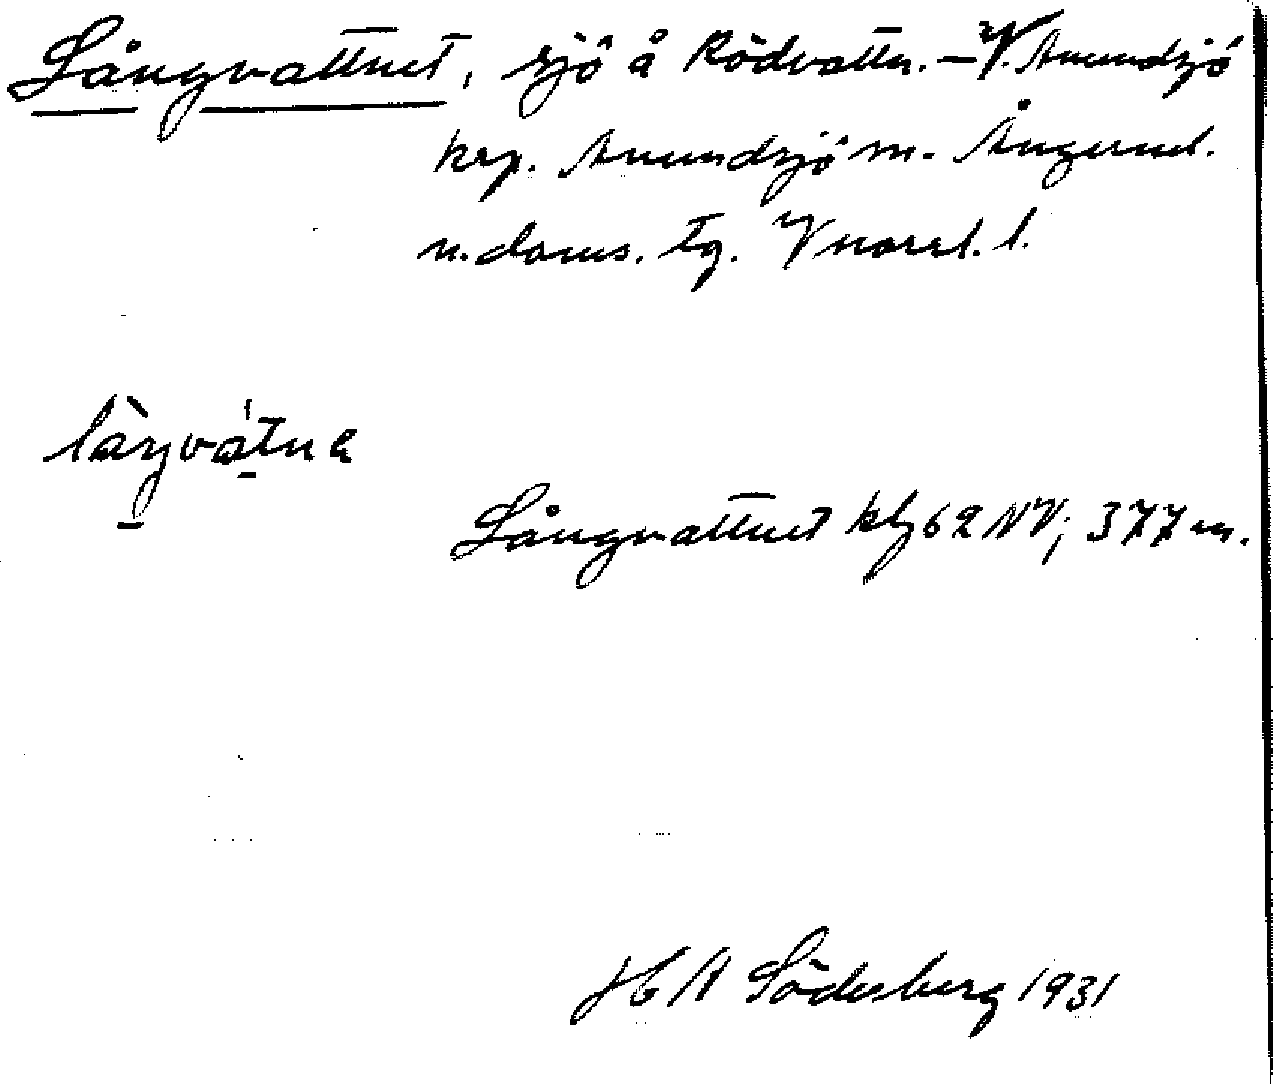 Långvattnet, sjö å Rödvattn. – V. Anundsjö
krp. Anundsjö sn. Ångerml.
n. doms. Tg. V norrl. l.
Långvattnet kbl 62 NV; 377 m.
H A Söderberg 1931